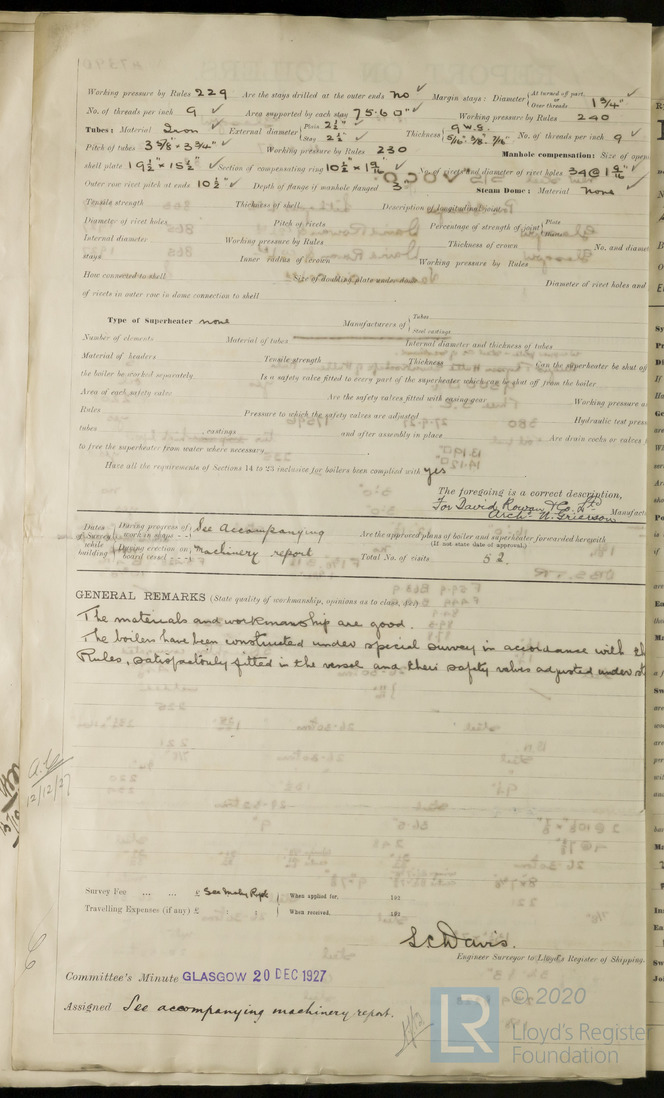 Working pressure by Rules 229 Are the stays drilled at the outer ends No Margin stays: Diameter { At turned off part, or Over threads 1 3/4"
No. of threads per inch 9 Area supported by each stay 75.60" Working pressure by Rules 240
Tubes: Material Iron External diameter { Plain 2 1/2" Stay 2 1/2" Thickness { 9 W.G. 5/16" 3/8" 7/16" No. of threads per inch 9
Pitch of tubes 3 5/8" × 3 3/4" Working pressure by Rules 230 Manhole compensation: Size of open
shell plate 19 1/2" × 15 1/2" Section of compensating ring 10 1/2" × 1 9/16" No. of rivets and diameter of rivet holes 34 @ 1 5/16"
Outer row rivet pitch at ends 10 1/2" Depth of flange if manhole flanged 3" Steam Dome: Material None
Tensile strength Thickness of shell Description of longitudinal joint
Diameter of rivet holes Pitch of rivets Percentage of strength of joint { Plate
Internal diameter Working pressure by Rules Thickness of crown No. and diamet
stays Inner radius of crown Working pressure by Rules
How connected to shell Size of doubling plate under dome Diameter of rivet holes and
of rivets in outer row in dome connection to shell
Type of Superheater None Manufacturers of { Tubes Steel castings
Number of elements Material of tubes Internal diameter and thickness of tubes
Material of headers Tensile strength Thickness Can the superheater be shut off
the boiler be worked separately Is a safety valve fitted to every part of the superheater which can be shut off from the boiler
Area of each safety valve Are the safety valves fitted with easing gear Working pressure
Rules Pressure to which the safety valves are adjusted Hydraulic test press
tubes , castings and after assembly in place Are drain cocks or valves
to free the superheater from water where necessary
Have all the requirements of Sections 14 to 23 inclusive for boilers been complied with yes
The foregoing is a correct description,
For David Rowan & Co. Ltd
Archd W. Grierson Manufact
Dates of Survey while building { During progress of work in shops - - } See Accompanying Are the approved plans of boiler and superheater forwarded herewith
(If not state date of approval.)
{ During erection on board vessel - - - } machinery report Total No. of visits 52.
GENERAL REMARKS (State quality of workmanship, opinions as to class, &c.)
The materials and workmanship are good.
The boilers have been constructed under special survey in accordance with th
Rules, satisfactorily fitted in the vessel and their safety valves adjusted under st
12/12/27
Survey Fee ... ... £ See Mchy Rept When applied for, 192
Travelling Expenses (if any) £ : : When received, 192
S C Davis.
Engineer Surveyor to Lloyd's Register of Shipping.
Committee's Minute GLASGOW 20 DEC 1927
Assigned See accompanying machinery report.
LR © 2020
Lloyd's Register
Foundation